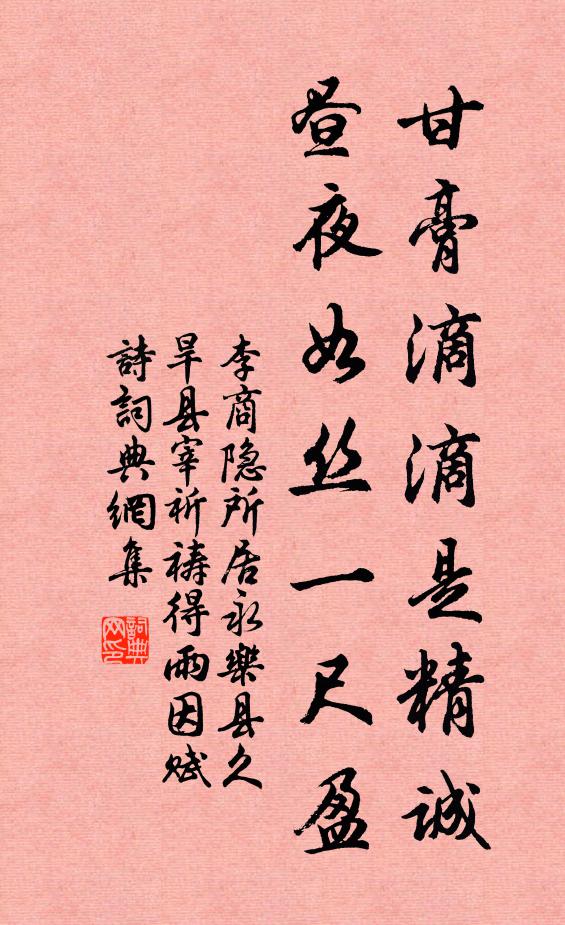 甘膏滴滴是精诚
昼夜如丝一尺盈
李商隐所居永樂县久
旱县宰祈祷得雨因赋
詩詞典網集
詞典
网印